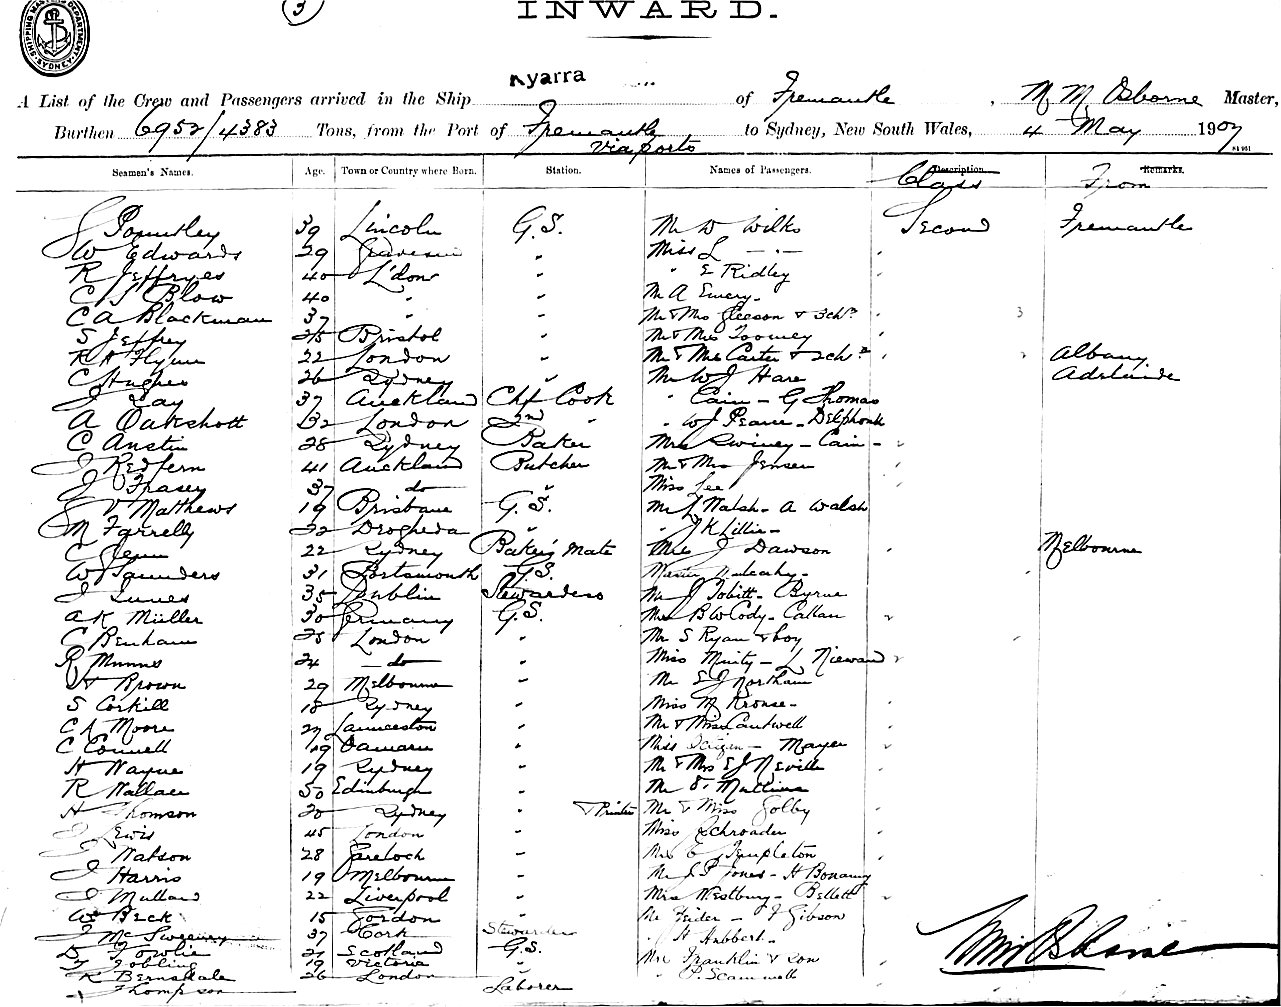 SHIPPING MASTERS DEPARTMENT SYDNEY
3
INWARD.
Kyarra
A List of the Crew and Passengers arrived in the Ship of Fremantle, M M Osborne Master,
Burthen 6952/4383 Tons, from the Port of Fremantle to Sydney, New South Wales, 4 May 1907
Via ports
Seamen's Names. Age. Town or Country where Born. Station. Names of Passengers. Description. Remarks.
Class From
39 Lincoln G.S. Mr W Wilks Second Fremantle
W Edwards 29 " Miss L — " —
R Jeffryes 40 L'don " " E Ridley
C Blow 40 " " Mr A Emery
C A Blackman 37 " " Mr & Mrs Gleeson & 3 chn 3
S Jeffrey 25 Bristol " Mr & Mrs Toomey
R H Flynn 22 London " Mr & Mrs Carter & 2 chn 2 Albany
C Hughes 26 Sydney " Mr W J Hare Adelaide
J Lay 37 Auckland Chf Cook " Cain - G Thomas
A Oakshott 32 London 2nd " " W J Pearce - Delphonk
C Austin 28 Sydney Baker Mrs Swiney - Cain
J Redfern 41 Auckland Butcher Mr & Mrs Jensen
J Fraser 37 do " Miss Lee
V Matthews 19 Brisbane G.S. Mr J Walsh - A Walsh
M Farrelly 22 Drogheda " " J K Lillie
C Glenn 22 Sydney Baker's Mate Mrs J Dawson Melbourne
W Saunders 31 Portsmouth G.S. Master Mulcahy
J Lunes 35 Dublin Stewardess Mr J Tobitt - Byrne
A K Müller 30 Germany G.S. Mrs B W Cody - Callan
C Benham 25 London " Mr S Ryan & boy
R Munns 24 do " Miss Minty - L Niewand
H Brown 29 Melbourne " Mr E J Northam
S Corkill 18 Sydney " Miss M Krouse
C A Moore 27 Launceston " Mr & Miss Cantwell
C Connell 19 Oamaru " Miss - Mayer
H Wayne 19 Sydney " Mr & Mrs E J Neville
R Wallace 50 Edinburgh " Mr D Mullins
H Thomson 20 Sydney " & Printer Mr & Miss Golby
J Lewis 45 London " Miss Schroader
J Watson 28 Gareloch " Mrs E Templeton
J Harris 19 Melbourne " Mr J P Jones - H Bonamy
J Mulland 22 Liverpool " Mrs Westbury - Bellett
W Beck 15 Gordon " Mr Feider - J Gibson
J McSweeney 37 Cork Stewardess " H Hubbert
D Fowlie 27 Scotland G.S. Mrs Franklin & son
T Gobling 19 Victoria " " P. Scammell
R Bernsdale 26 London "
Thompson Laborer
M M Osborne